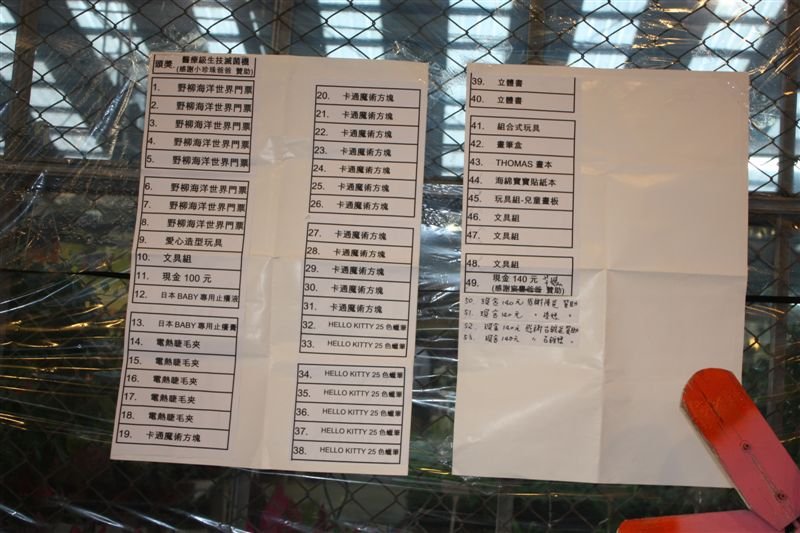 頭獎: 醫療級生技滅菌機
(感謝小珍珠爸爸 贊助)
1. 野柳海洋世界門票
2. 野柳海洋世界門票
3. 野柳海洋世界門票
4. 野柳海洋世界門票
5. 野柳海洋世界門票
6. 野柳海洋世界門票
7. 野柳海洋世界門票
8. 野柳海洋世界門票
9. 愛心造型玩具
10. 文具組
11. 現金 100 元
12. 日本 BABY 專用止癢液
13. 日本 BABY 專用止癢膏
14. 電熱睫毛夾
15. 電熱睫毛夾
16. 電熱睫毛夾
17. 電熱睫毛夾
18. 電熱睫毛夾
19. 卡通魔術方塊
20. 卡通魔術方塊
21. 卡通魔術方塊
22. 卡通魔術方塊
23. 卡通魔術方塊
24. 卡通魔術方塊
25. 卡通魔術方塊
26. 卡通魔術方塊
27. 卡通魔術方塊
28. 卡通魔術方塊
29. 卡通魔術方塊
30. 卡通魔術方塊
31. 卡通魔術方塊
32. HELLO KITTY 25 色蠟筆
33. HELLO KITTY 25 色蠟筆
34. HELLO KITTY 25 色蠟筆
35. HELLO KITTY 25 色蠟筆
36. HELLO KITTY 25 色蠟筆
37. HELLO KITTY 25 色蠟筆
38. HELLO KITTY 25 色蠟筆
39. 立體書
40. 立體書
41. 組合式玩具
42. 畫筆盒
43. THOMAS 畫本
44. 海綿寶寶貼紙本
45. 玩具組-兒童畫板
46. 文具組
47. 文具組
48. 文具組
49. 現金 140 元
(感謝宸馨爸爸 贊助)
50. 現金 140元 感謝 贊助
51. 現金 140元 〃 〃
52. 現金 140元 感謝 贊助
53. 現金 140元 〃 〃